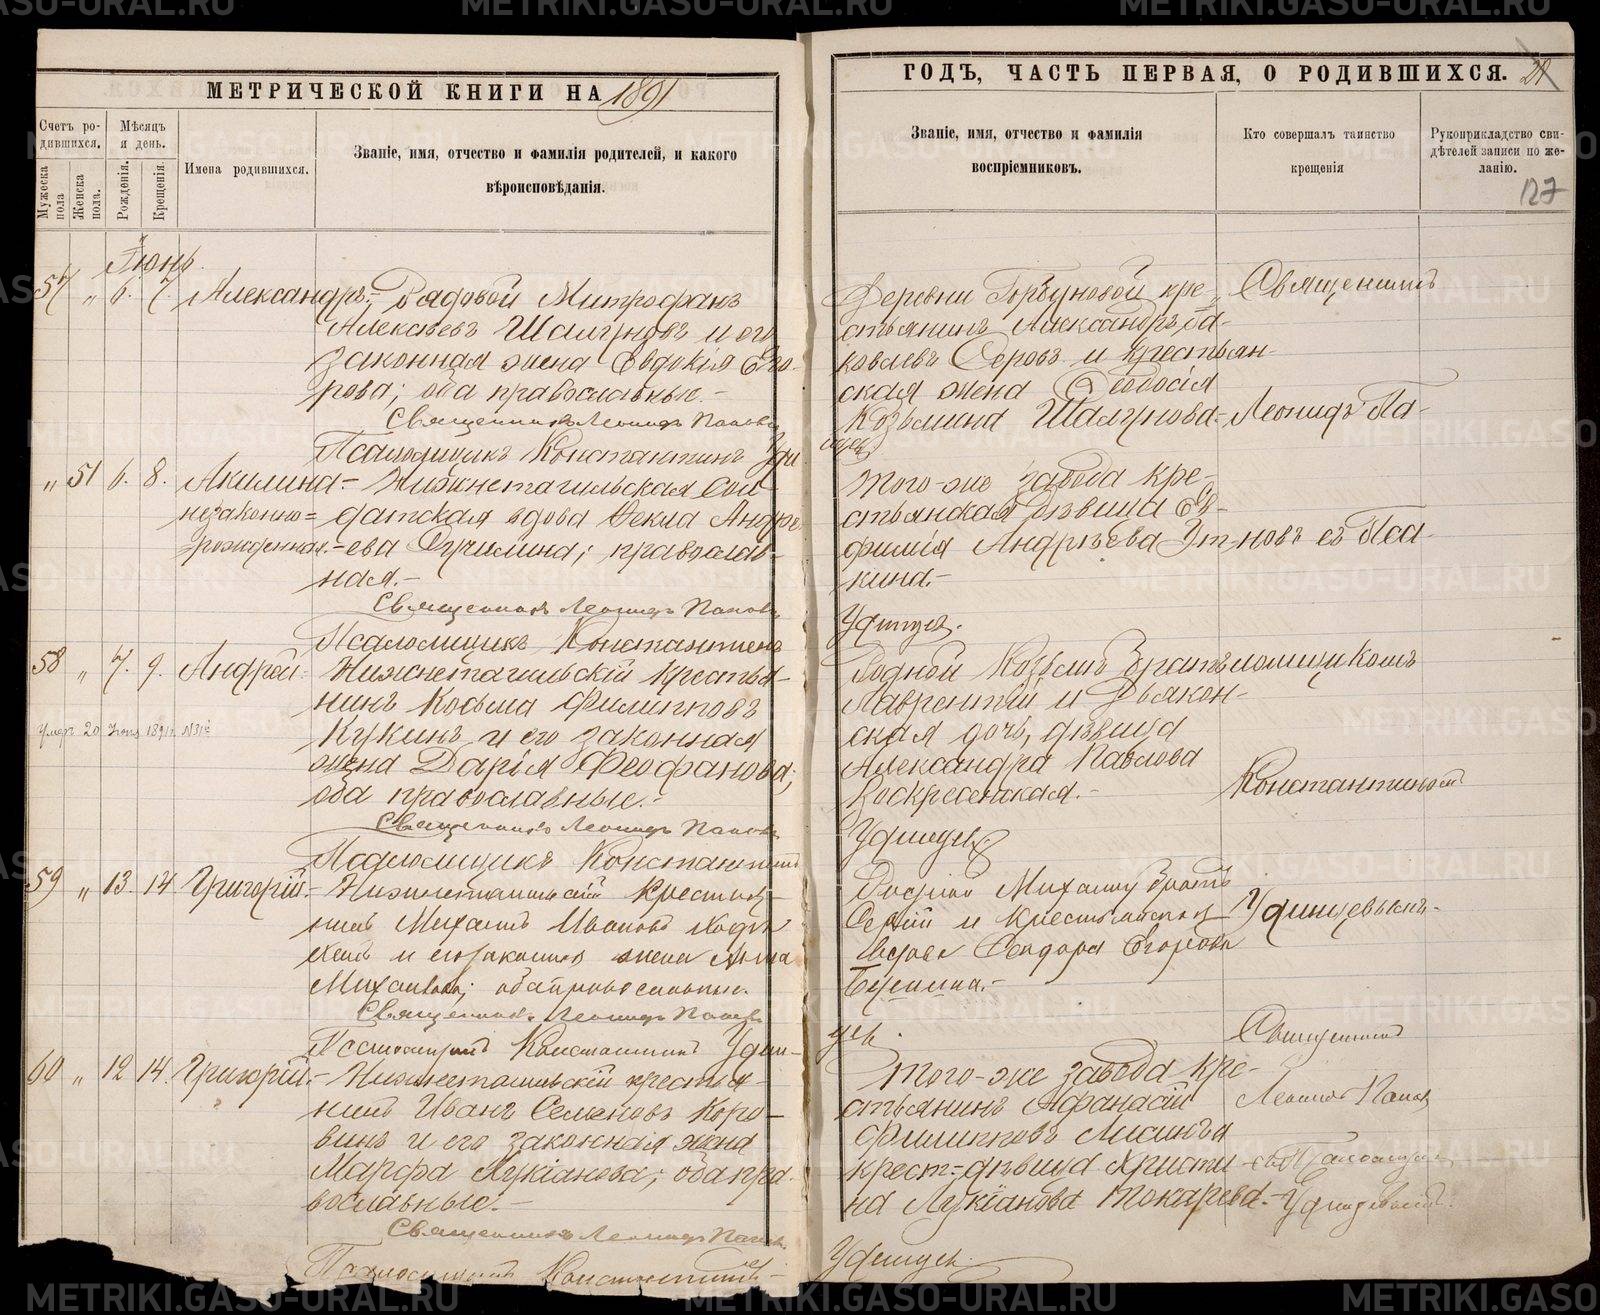 МЕТРИЧЕСКОЙ КНИГИ НА 1891
Счетъ родившихся.
Мужеска пола
Женска пола.
Мѣсяцъ и день.
Рожденія.
Крещенія.
Имена родившихся.
Званіе, имя, отчество и фамилія родителей, и какого
вѣроисповѣданія.
Іюнь.
57 " 6. 7. Александръ. Рядовой Митрофанъ
Алексѣевъ Шалгуновъ и его
законная жена Евдокія Его-
рова; оба православные.-
Священникъ Леонидъ Поповъ
Псаломщикъ Константинъ Уди
" 51 6. 8. Акилина.- Нижнетагильская Сол-
незаконно= датская вдова Текла Андре
рожденная.- ева ; православ-
ная.-
Священникъ Леонидъ Поповъ
Псаломщикъ Константинъ
58 " 7. 9. Андрей. Нижнетагильскій крестья-
нинъ Косьма Филипповъ
Кукинъ и его законная
жена Дарія Феофанова;
оба православные.-
Умеръ 20 1891
Священникъ Леонидъ Поповъ
Псаломщикъ Константинъ
59 " 13. 14 Григорій.- Нижнетагильскій крестья-
нинъ Михаилъ Ивановъ
и его законная жена Анна
Михайлова; оба православные.
Священникъ Леонидъ Поповъ
Псаломщикъ Константинъ Удин-
60 " 12 14. Григорій.- Нижнетагильскій крестья-
нинъ Иванъ Семеновъ Коро-
винъ и его законная жена
Марфа Лукіанова; оба пра
вославные.-
Священникъ Леонидъ Поповъ
Псаломщикъ Константинъ-
ГОДЪ, ЧАСТЬ ПЕРВАЯ, О РОДИВШИХСЯ.
Званіе, имя, отчество и фамилія
воспріемниковъ.
Кто совершалъ таинство
крещенія
Руководприкладство сви-
дѣтелей записи по же-
ланію.
127
Деревни Горбуновой кре- Священникъ
стьянинъ Александръ Яа-
ковлевъ и крестьян-
ская жена Ѳеодосія
Козьмина Шалгунова.- Леонидъ По-
цевъ
Того-же завода кре-
стьянская дѣвица Ев-
фимія Андреева новъ съ Пса-
кина.-
Удинцевъ.
Родной Козьмѣ братъ ломщикомъ
Лаврентій и Дьякон-
ская дочь, дѣвица
Александра Павлова
Воскресенская.- Константиномъ
Удинцевъ.
Родной Михаилу братъ
Сергій и крестьянская Удинцевымъ.-
вдова Егорова
-
цевъ. Священникъ
Того-же завода кре-
стьянинъ Афанасій Леонидъ Поповъ
Филипповъ и
крест=дѣвица Христи-
на Лукіанова Токарева.- Удинцевымъ.
Удинцевъ.
METRIKI.GASO-URAL.RU